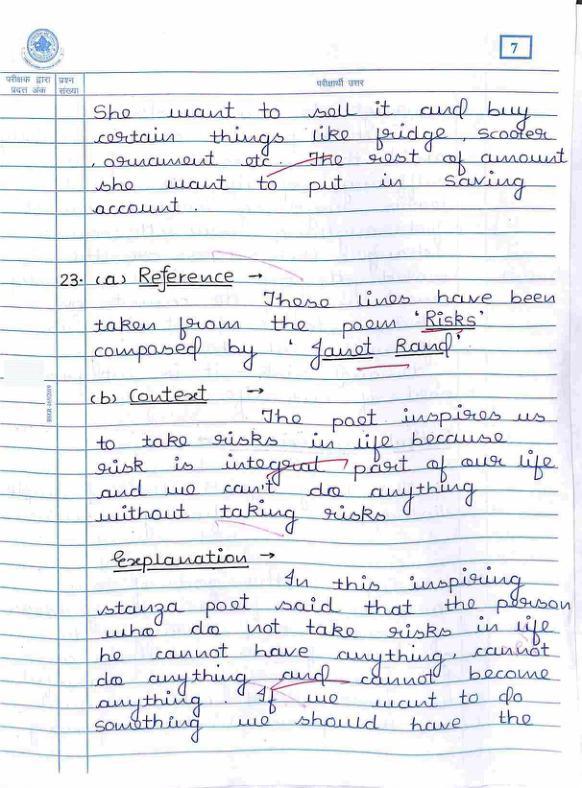 7
परीक्षक द्वारा प्रदत्त अंक
प्रश्न संख्या
परीक्षार्थी उत्तर
She want to sell it and buy
certain things like fridge, scooter
, ornament etc. The rest of amount
she want to put in saving
account.
23. (a) Reference →
These lines have been
taken from the poem 'Risks'
composed by 'Janet Rand'.
(b) Context →
The poet inspires us
to take risks in life because
risk is integral part of our life
and we can't do anything
without taking risks
Explanation →
In this inspiring
stanza poet said that the person
who do not take risks in life
he cannot have anything, cannot
do anything and cannot become
anything. If we want to do
something we should have the